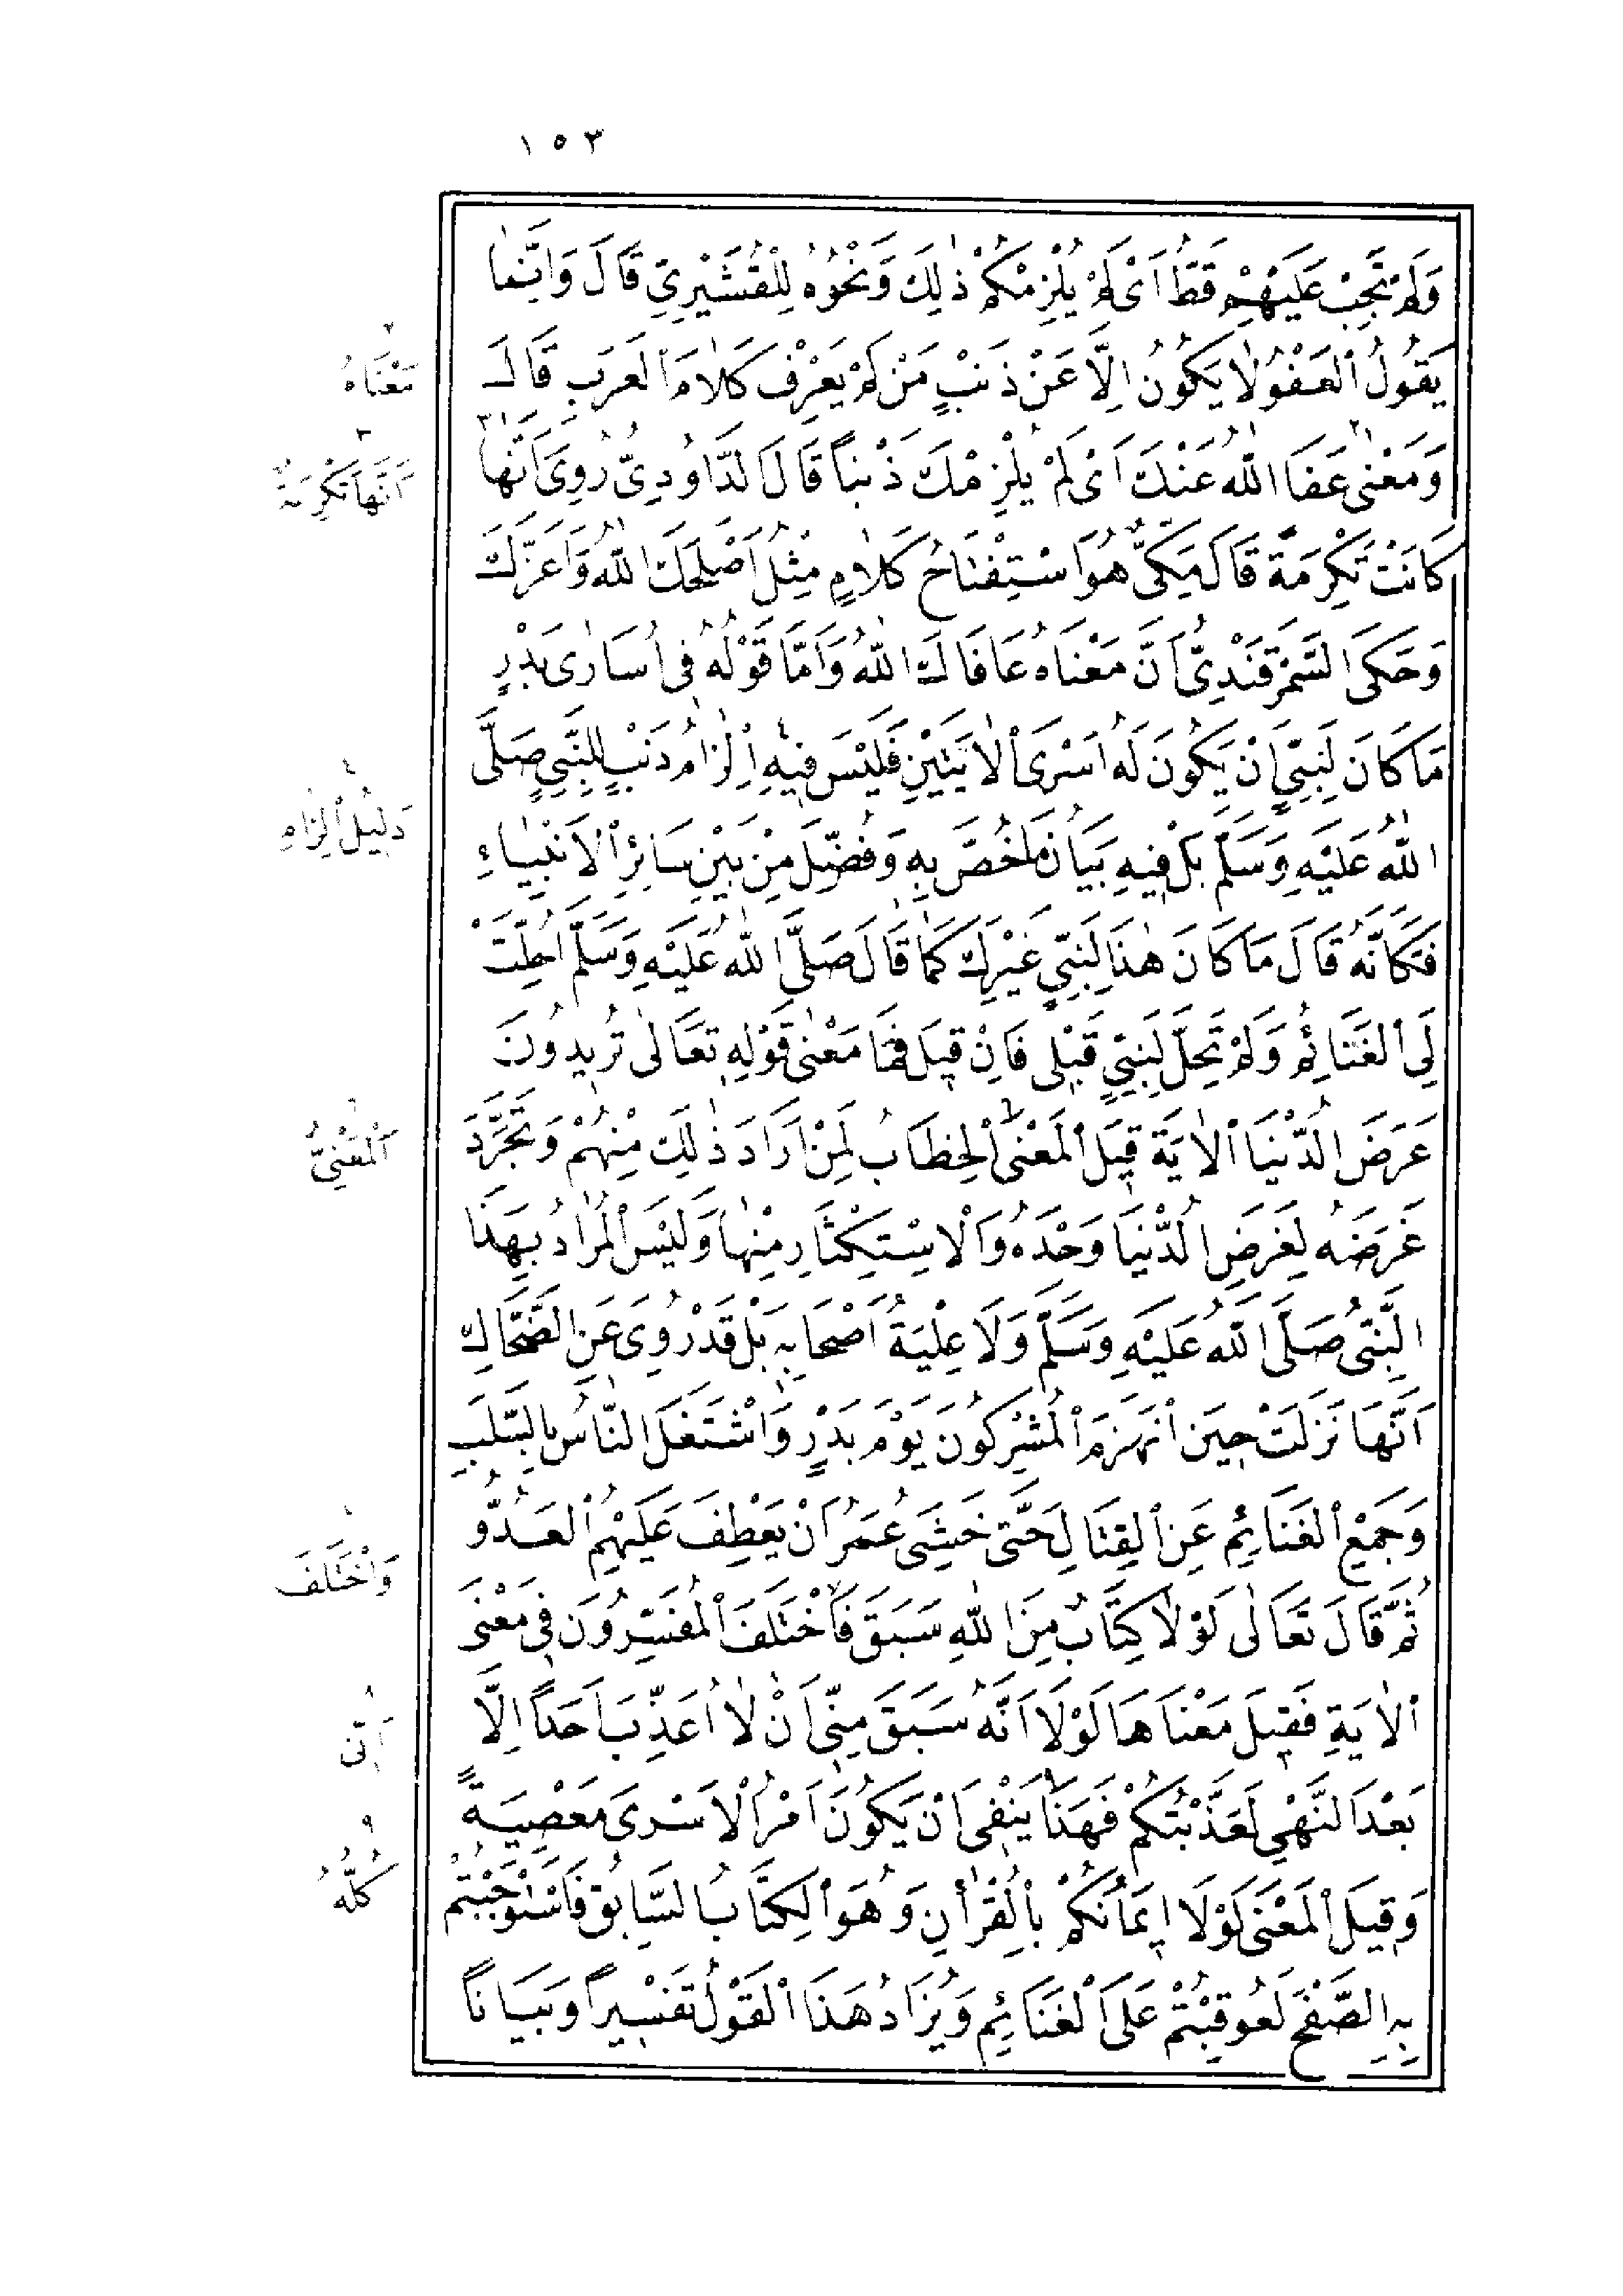 ١٥٣
وَلَمْ تَجِبْ عَلَيْهِمْ قَطُّ اَىْ لَمْ يُلْزِمْكُمْ ذٰلِكَ وَنَحْوُهُ لِلْقُشَيْرِيِّ قَالَ وَاِنَّمَا
يَقُولُ الْعَفْوُ لَا يَكُونُ اِلَّا عَنْ ذَنْبٍ مَنْ لَمْ يَعْرِفْ كَلَامَ الْعَرَبِ قَالَ
وَمَعْنٰى عَفَا اللّٰهُ عَنْكَ اَىْ لَمْ يُلْزِمْكَ ذَنْبًا قَالَ الدَّاوُدِىُّ رُوِىَ اَنَّهَا
كَانَتْ تَكْرِمَةً قَالَ مَكِّىٌّ هُوَ اسْتِفْتَاحُ كَلَامٍ مِثْلُ اَصْلَحَكَ اللّٰهُ وَاَعَزَّكَ
وَحَكَى السَّمَرْقَنْدِىُّ اَنَّ مَعْنَاهُ عَافَاكَ اللّٰهُ وَاَمَّا قَوْلُهُ فِى اُسَارٰى بَدْرٍ
مَا كَانَ لِنَبِىٍّ اَنْ يَكُونَ لَهُ اَسْرَى الْاٰيَتَيْنِ فَلَيْسَ فِيهِ اِلْزَامُ ذَنْبٍ لِلنَّبِىِّ صَلَّى
اللّٰهُ عَلَيْهِ وَسَلَّمَ بَلْ فِيهِ بَيَانُ مَا خُصَّ بِهِ وَفُضِّلَ مِنْ بَيْنِ سَائِرِ الْاَنْبِيَاءِ
فَكَاَنَّهُ قَالَ مَا كَانَ هٰذَا لِنَبِىٍّ غَيْرِكَ كَمَا قَالَ صَلَّى اللّٰهُ عَلَيْهِ وَسَلَّمَ اُحِلَّتْ
لِىَ الْغَنَائِمُ وَلَمْ تَحِلَّ لِنَبِىٍّ قَبْلِى فَاِنْ قِيلَ فَمَا مَعْنٰى قَوْلِهِ تَعَالٰى تُرِيدُونَ
عَرَضَ الدُّنْيَا الْاٰيَةَ قِيلَ الْمَعْنٰى الْخِطَابُ لِمَنْ اَرَادَ ذٰلِكَ مِنْهُمْ وَتَجَرَّدَ
غَرَضُهُ لِغَرَضِ الدُّنْيَا وَحْدَهُ وَالْاِسْتِكْثَارِ مِنْهَا وَلَيْسَ الْمُرَادُ بِهَذَا
النَّبِىُّ صَلَّى اللّٰهُ عَلَيْهِ وَسَلَّمَ وَلَا عِلْيَةُ اَصْحَابِهِ بَلْ قَدْ رُوِىَ عَنِ الضَّحَّاكِ
اَنَّهَا نَزَلَتْ حِينَ انْهَزَمَ الْمُشْرِكُونَ يَوْمَ بَدْرٍ وَاشْتَغَلَ النَّاسُ بِالسَّلَبِ
وَجَمْعِ الْغَنَائِمِ عَنِ الْقِتَالِ حَتَّى خَشِىَ عُمَرُ اَنْ يَعْطِفَ عَلَيْهِمُ الْعَدُوُّ
ثُمَّ قَالَ تَعَالٰى لَوْلَا كِتَابٌ مِنَ اللّٰهِ سَبَقَ فَاخْتَلَفَ الْمُفَسِّرُونَ فِى مَعْنَى
الْاٰيَةِ فَقِيلَ مَعْنَاهَا لَوْلَا اَنَّهُ سَبَقَ مِنِّى اَنْ لَا اُعَذِّبَ اَحَدًا اِلَّا
بَعْدَ النَّهْىِ لَعَذَّبْتُكُمْ فَهَذَا يَنْفِى اَنْ يَكُونَ اَمْرُ الْاَسْرَى مَعْصِيَةً
وَقِيلَ الْمَعْنَى لَوْلَا اِيمَانُكُمْ بِالْقُرْاٰنِ وَهُوَ الْكِتَابُ السَّابِقُ فَاسْتَوْجَبْتُمْ
بِهِ الصَّفْحَ لَعُوقِبْتُمْ عَلَى الْغَنَائِمِ وَيُزَادُ هَذَا الْقَوْلُ تَفْسِيرًا وَبَيَانًا
مَعْنَاهُ
اَنَّهَا تَكْرِمَةٌ
دَلِيلُ اِلْزَامِ
اَلْمَعْنِىُّ
وَاخْتَلَفَ
اَنِّى
كُلُّهُ